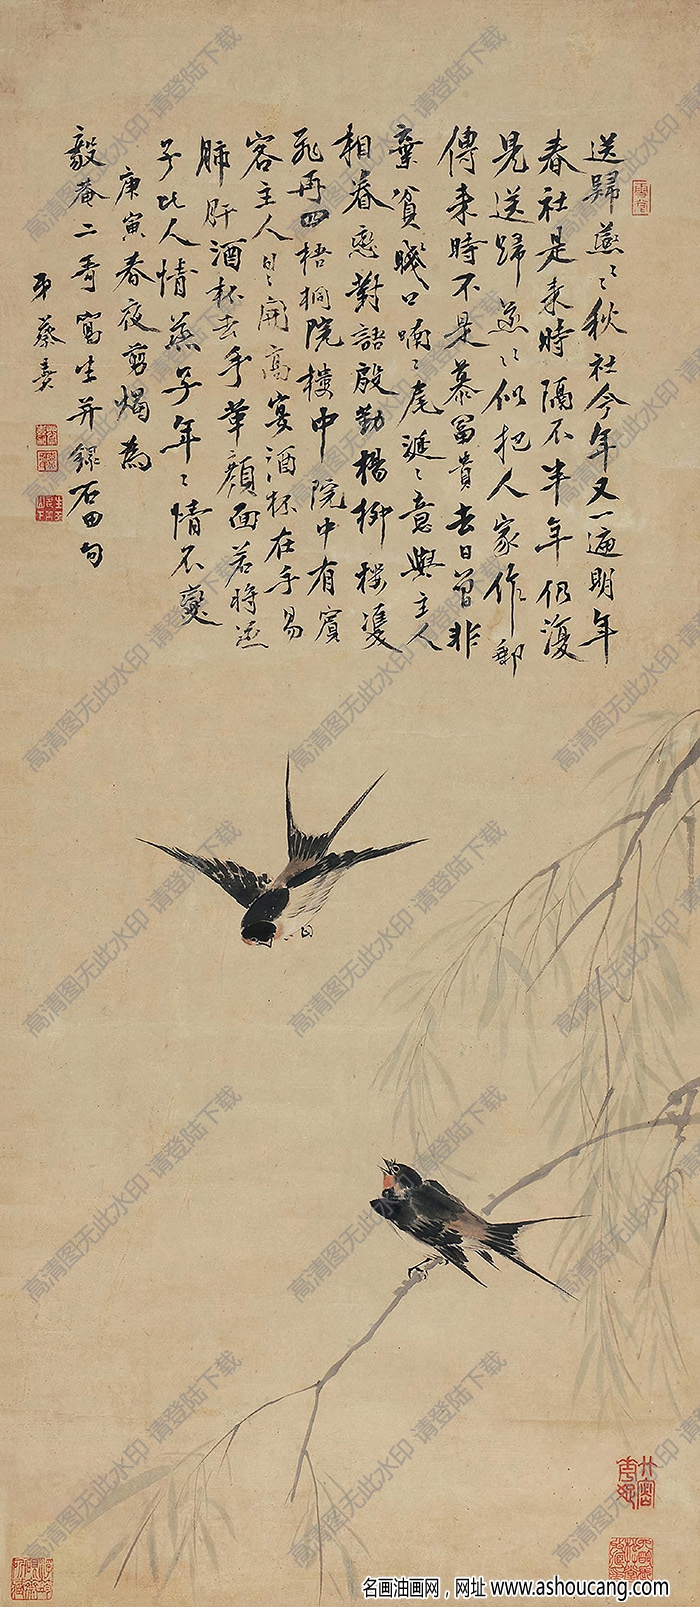 送歸燕〻秋社今年又一遍明年
春社是来時隔不半年仍復
見送歸燕〻似把人家作郵
傳来時不是慕富貴去日曾非
棄貧賤口喃〻尾涎〻意與主人
相眷恋對語殷勤楊柳樓雙
飛再四梧桐院樓中院中有賓
客主人日〻開高宴酒杯在手易
肺肝酒杯去手華顔面若將燕
子比人情燕子年〻情不變
庚寅春夜剪燭為
毅菴二哥寫生并録石田句
弟蔡
高清图无此水印·请登陆下载
名画油画网，网址 www.ashoucang.com